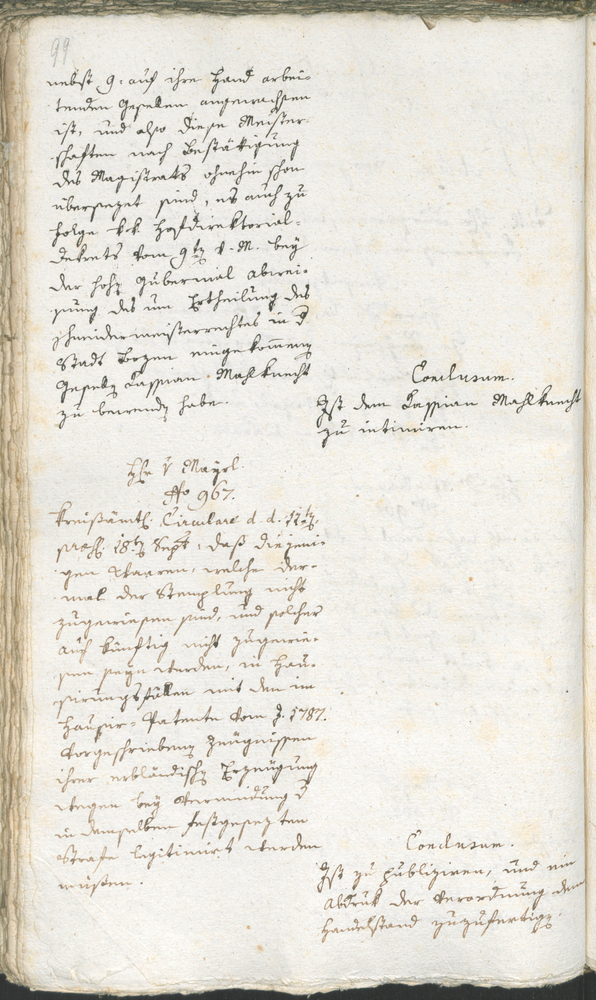 99
nebst 9. auf ihre Hand arbei-
tenden Gesellen angewachsen
ist, und also diese Meister-
schaften nach Bestättigung
des Magistrats ohnehin schon
übersezet sind, es auch zu
Folge k. k. Hofdirektorial-
Dekrets vom 9t v. M. bey
der hohn Gubernial abwei-
sung des um Ertheilung des
Schneidermeisterrechtes in d
Stadt Bozen eingekommenen
Gesellen Cassian Mahlknecht
zu bewenden habe.
Conclusum.
Ist dem Cassian Mahlknecht
zu intimiren.
H v Mayrl.
No 967.
Kreißämtl. Circulare d. d. 11t
praes. 18t Sept, daß diejeni-
gen Waaren, welche der-
mal der Stemplung nicht
zugewiesen sind, und solcher
auch künftig nicht zugewie-
sen seyn werden, in Hau-
sirungsfällen mit den im
Hausir-Patente vom J. 1787.
vorgeschriebenen Zeugnissen
ihrer erbländischen Erzeugung
wegen bey Vermeidung d
in demselben festgesezten
Strafe legitimirt werden
müssen.
Conclusum.
Ist zu publiziren, und ein
Abdruk der Verordnung dem
Handelstand zuzufertigen.